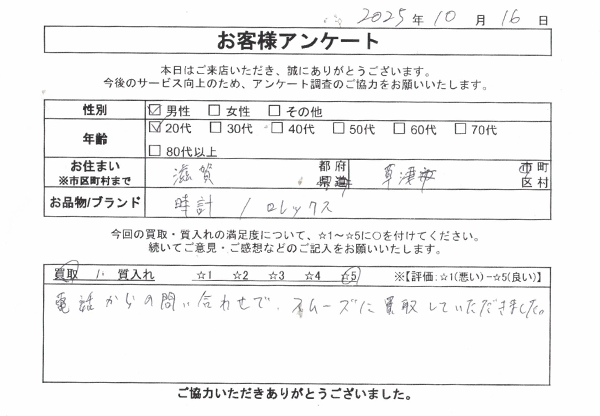 2025年 10月 16日
お客様アンケート
本日はご来店いただき、誠にありがとうございます。
今後のサービス向上のため、アンケート調査のご協力をお願いいたします。
性別 ☑男性 □女性 □その他
年齢 ☑20代 □30代 □40代 □50代 □60代 □70代
□80代以上
お住まい
※市区町村まで
滋賀 都 府 県 道 草津市 市 町 区 村
お品物/ブランド 時計 / ロレックス
今回の買取・質入れの満足度について、☆1～☆5に○を付けてください。
続いてご意見・ご感想などのご記入をお願いいたします。
買取 / 質入れ ☆1 ☆2 ☆3 ☆4 ☆5 ※【評価:☆1(悪い)-☆5(良い)】
電話からの問い合わせで、スムーズに買取していただきました。
ご協力いただきありがとうございました。